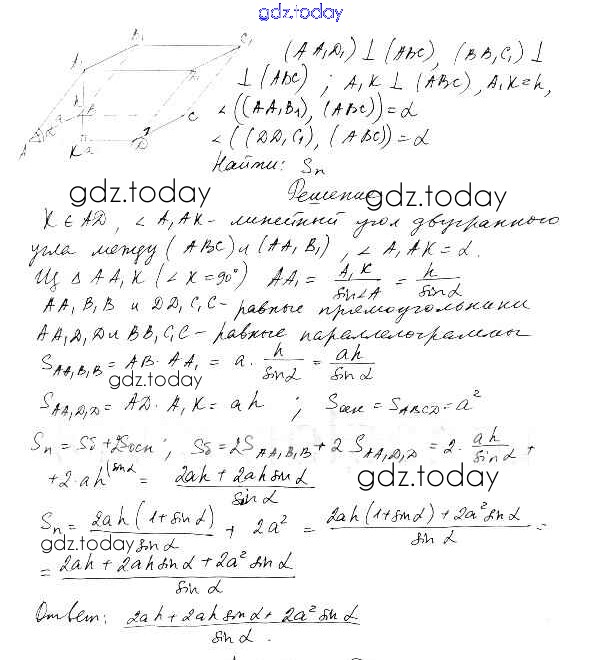 gdz.today
(AA₁D₁) ⊥ (ABC), (BB₁C₁) ⊥
⊥ (ABC); A₁K ⊥ (ABC), A₁K=h,
∠((AA₁B₁), (ABC))=α
∠((DD₁C₁), (ABC))=α
Найти: Sп
gdz.today
Решение
gdz.today
K ∈ AD, ∠A₁AK - линейный угол двугранного
угла между (ABC) и (AA₁B₁), ∠A₁AK=α.
Из △AA₁K (∠K=90°) AA₁ = A₁K/sin∠A = h/sinα
AA₁B₁B и DD₁C₁C - равные прямоугольники
AA₁D₁D и BB₁C₁C - равные параллелограммы
S_AA₁B₁B = AB · AA₁ = a · h/sinα = ah/sinα
gdz.today
S_AA₁D₁D = AD · A₁K = ah; Sосн = S_ABCD = a²
Sп = Sб + 2Sосн; Sб = 2S_AA₁B₁B + 2S_AA₁D₁D = 2 · ah/sinα +
+ 2 · ah^(sinα = (2ah + 2ah sinα)/sinα
gdz.today
Sп = 2ah(1+sinα)/sinα + 2a² = (2ah(1+sinα) + 2a² sinα)/sinα =
gdz.today
= (2ah + 2ah sinα + 2a² sinα)/sinα
Ответ: (2ah + 2ah sinα + 2a² sinα)/sinα.